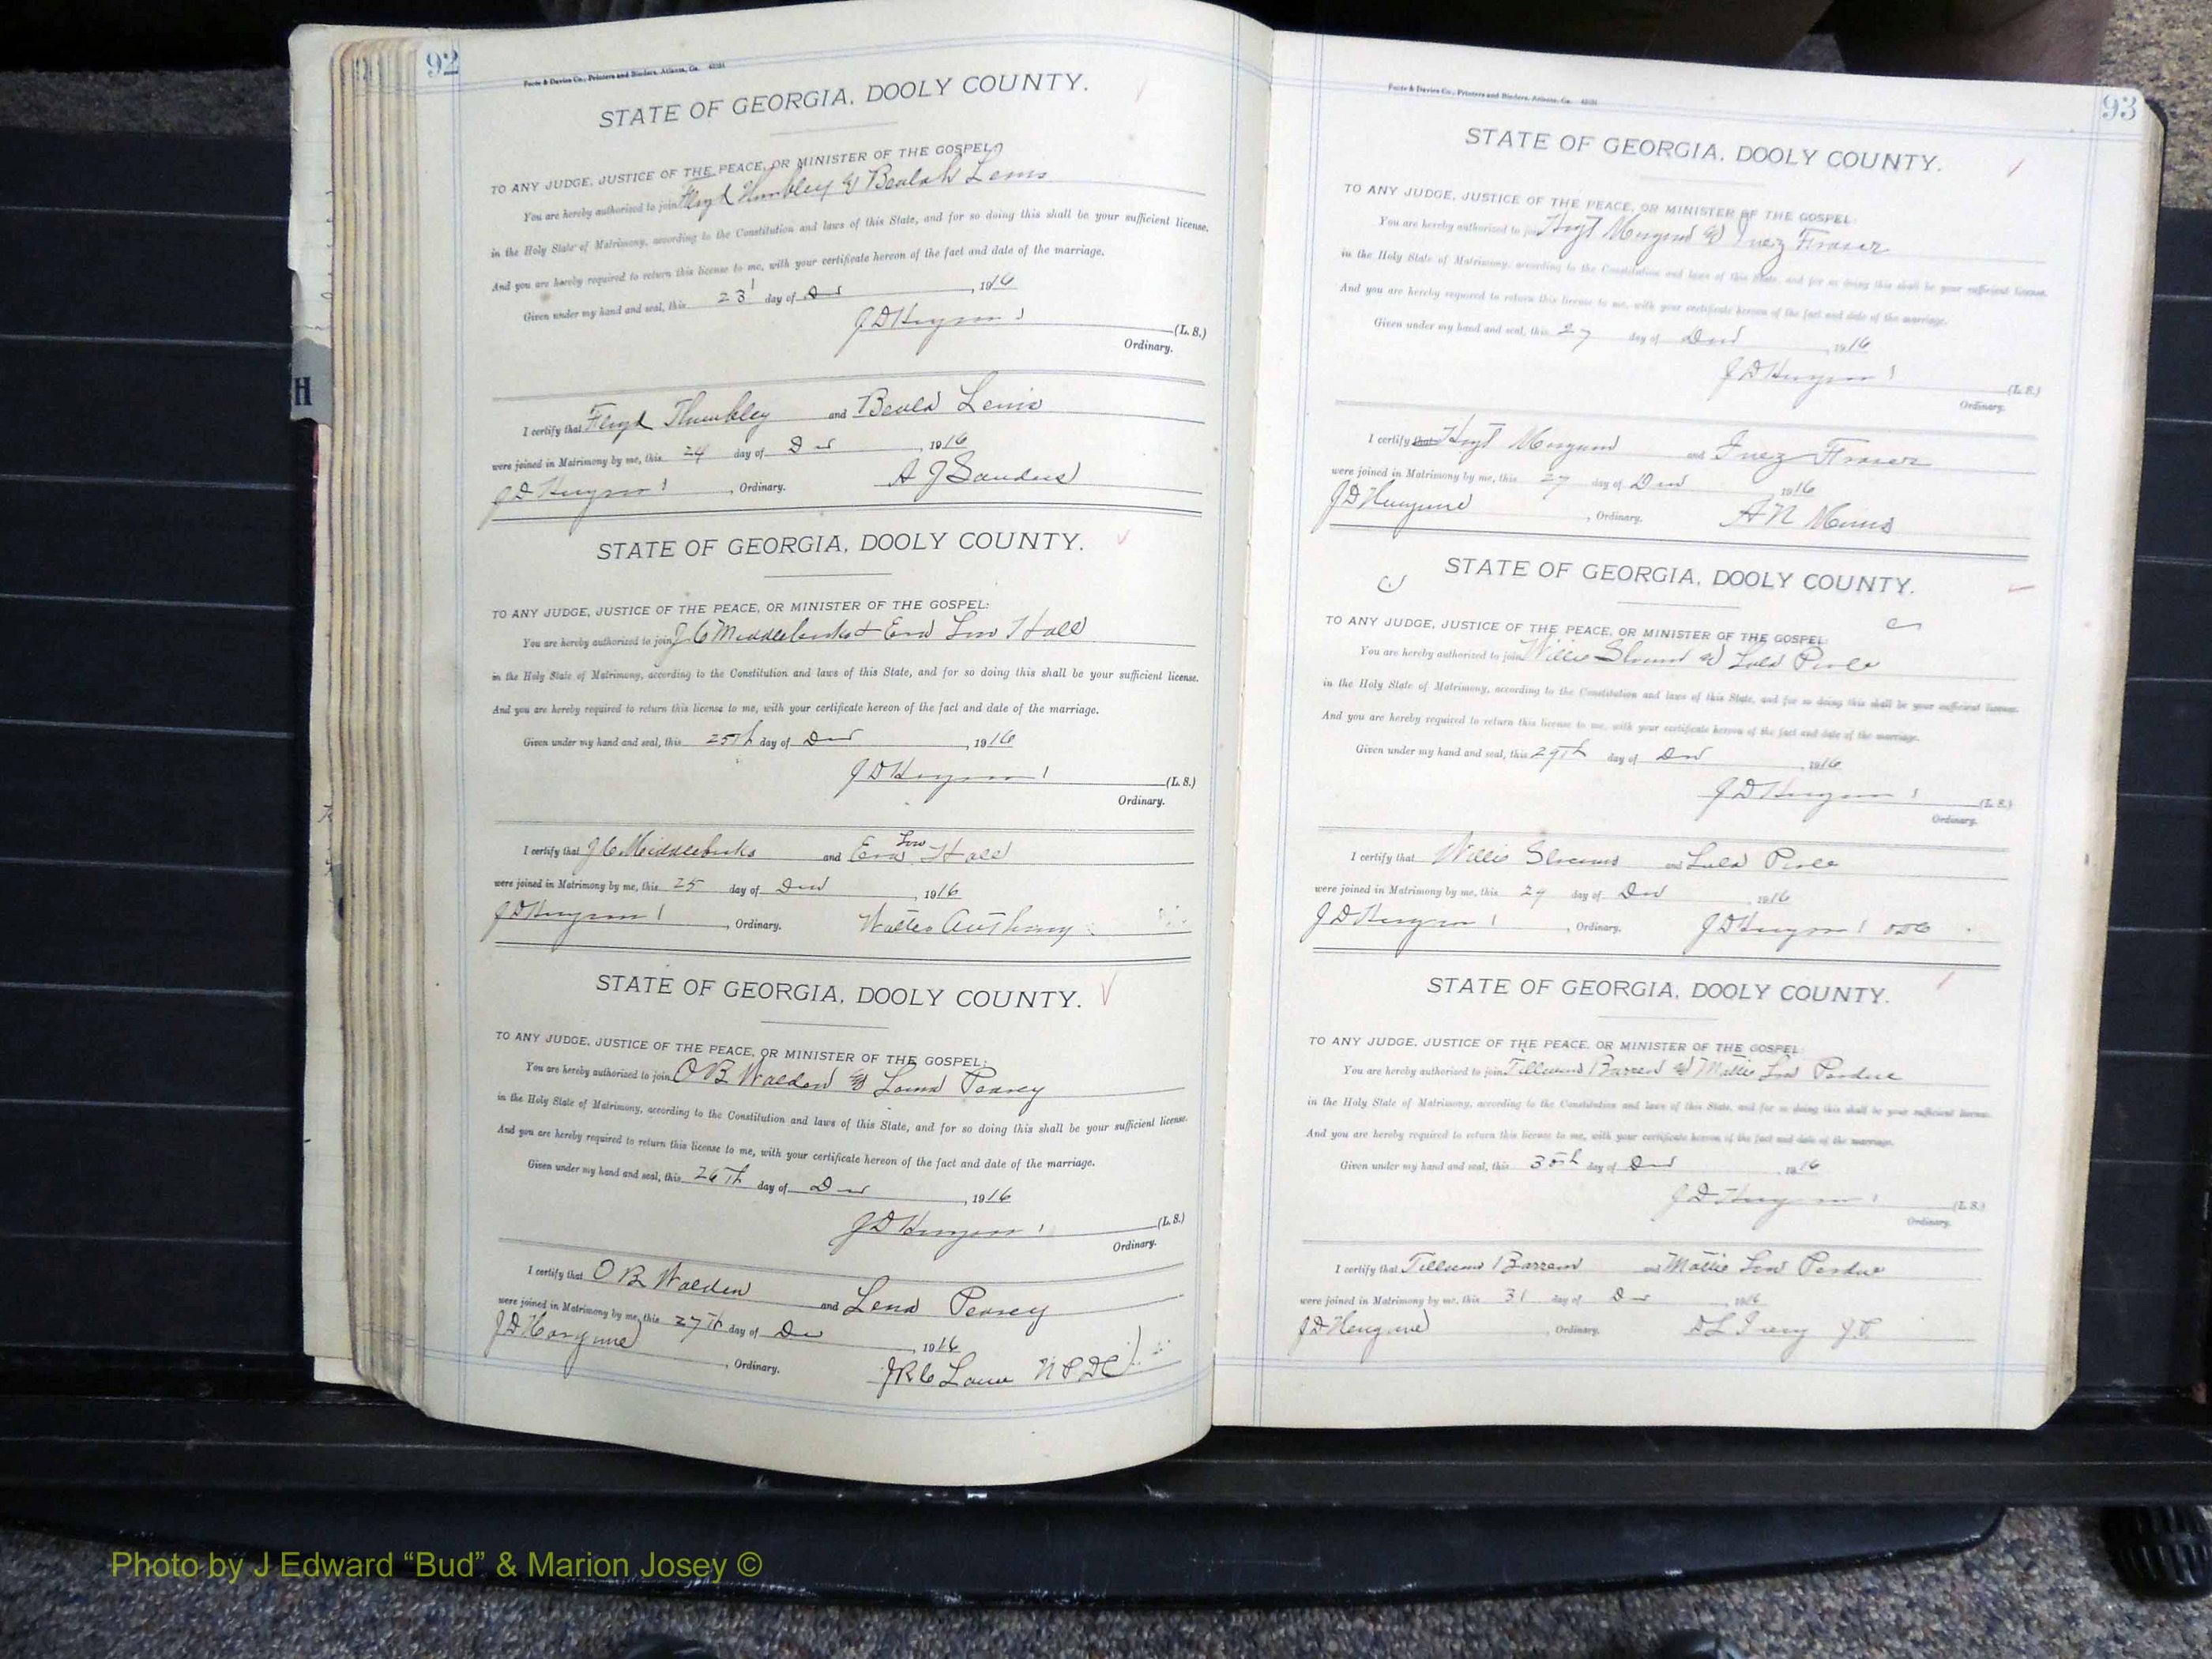 92
Foote & Davies Co., Printers and Binders, Atlanta, Ga.
STATE OF GEORGIA, DOOLY COUNTY.
TO ANY JUDGE, JUSTICE OF THE PEACE, OR MINISTER OF THE GOSPEL:
You are hereby authorized to join Floyd & Beulah Lewis
in the Holy State of Matrimony, according to the Constitution and laws of this State, and for so doing this shall be your sufficient license.
And you are hereby required to return this license to me, with your certificate hereon of the fact and date of the marriage.
Given under my hand and seal, this 23 day of 1916
J D (L. S.)
Ordinary.
I certify that Floyd and Beula Lewis
were joined in Matrimony by me, this 24 day of 1916
J D , Ordinary. A J Sanders
STATE OF GEORGIA, DOOLY COUNTY.
TO ANY JUDGE, JUSTICE OF THE PEACE, OR MINISTER OF THE GOSPEL:
You are hereby authorized to join J C Middlebrooks & Hall
in the Holy State of Matrimony, according to the Constitution and laws of this State, and for so doing this shall be your sufficient license.
And you are hereby required to return this license to me, with your certificate hereon of the fact and date of the marriage.
Given under my hand and seal, this 25th day of 1916
J D (L. S.)
Ordinary.
I certify that J C Middlebrooks and Hall
were joined in Matrimony by me, this 25 day of 1916
J D , Ordinary. Walter Anthony
STATE OF GEORGIA, DOOLY COUNTY.
TO ANY JUDGE, JUSTICE OF THE PEACE, OR MINISTER OF THE GOSPEL:
You are hereby authorized to join O B Walden & Pearcy
in the Holy State of Matrimony, according to the Constitution and laws of this State, and for so doing this shall be your sufficient license.
And you are hereby required to return this license to me, with your certificate hereon of the fact and date of the marriage.
Given under my hand and seal, this 26th day of 1916
J D (L. S.)
Ordinary.
I certify that O B Walden and Lena Pearcy
were joined in Matrimony by me, this 27th day of 1916
J D , Ordinary. N P D C
93
Foote & Davies Co., Printers and Binders, Atlanta, Ga.
STATE OF GEORGIA, DOOLY COUNTY.
TO ANY JUDGE, JUSTICE OF THE PEACE, OR MINISTER OF THE GOSPEL:
You are hereby authorized to join Hoyt & Inez Fraser
in the Holy State of Matrimony, according to the Constitution and laws of this State, and for so doing this shall be your sufficient license.
And you are hereby required to return this license to me, with your certificate hereon of the fact and date of the marriage.
Given under my hand and seal, this 27 day of 1916
J D (L. S.)
Ordinary.
I certify that Hoyt and Inez Fraser
were joined in Matrimony by me, this 27 day of 1916
J D , Ordinary. A N Mims
STATE OF GEORGIA, DOOLY COUNTY.
TO ANY JUDGE, JUSTICE OF THE PEACE, OR MINISTER OF THE GOSPEL:
You are hereby authorized to join Willie & Lula
in the Holy State of Matrimony, according to the Constitution and laws of this State, and for so doing this shall be your sufficient license.
And you are hereby required to return this license to me, with your certificate hereon of the fact and date of the marriage.
Given under my hand and seal, this 29th day of 1916
J D (L. S.)
Ordinary.
I certify that Willis and Lula
were joined in Matrimony by me, this 29 day of 1916
J D , Ordinary. J D
STATE OF GEORGIA, DOOLY COUNTY.
TO ANY JUDGE, JUSTICE OF THE PEACE, OR MINISTER OF THE GOSPEL:
You are hereby authorized to join & Mattie Perdue
in the Holy State of Matrimony, according to the Constitution and laws of this State, and for so doing this shall be your sufficient license.
And you are hereby required to return this license to me, with your certificate hereon of the fact and date of the marriage.
Given under my hand and seal, this 30th day of 1916
J D (L. S.)
Ordinary.
I certify that and Mattie Perdue
were joined in Matrimony by me, this 31 day of 1916
J D , Ordinary. D L Ivey J P
H
Photo by J Edward “Bud” & Marion Josey ©